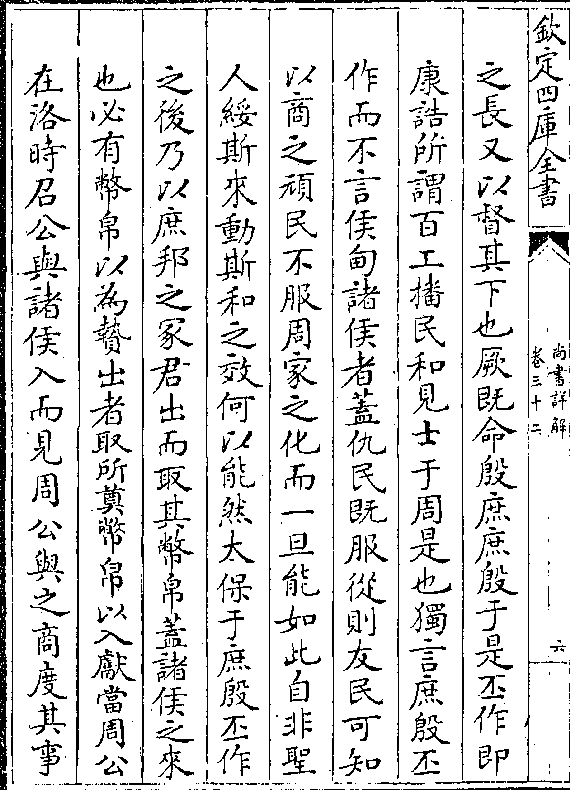 欽定四庫全書
尚書詳解
卷三十二
六
之長又以督其下也厥既命殷庶庶殷于是丕作即
康誥所謂百工播民和見士于周是也獨言庶殷丕
作而不言侯甸諸侯者蓋仇民既服從則友民可知
以商之頑民不服周家之化而一旦能如此自非聖
人綏斯來動斯和之效何以能然太保于庶殷丕作
之後乃以庶邦之冢君出而取其幣帛蓋諸侯之來
也必有幣帛以為贄出者取所奠幣帛以入獻當周公
在洛時召公與諸侯入而見周公與之商度其事